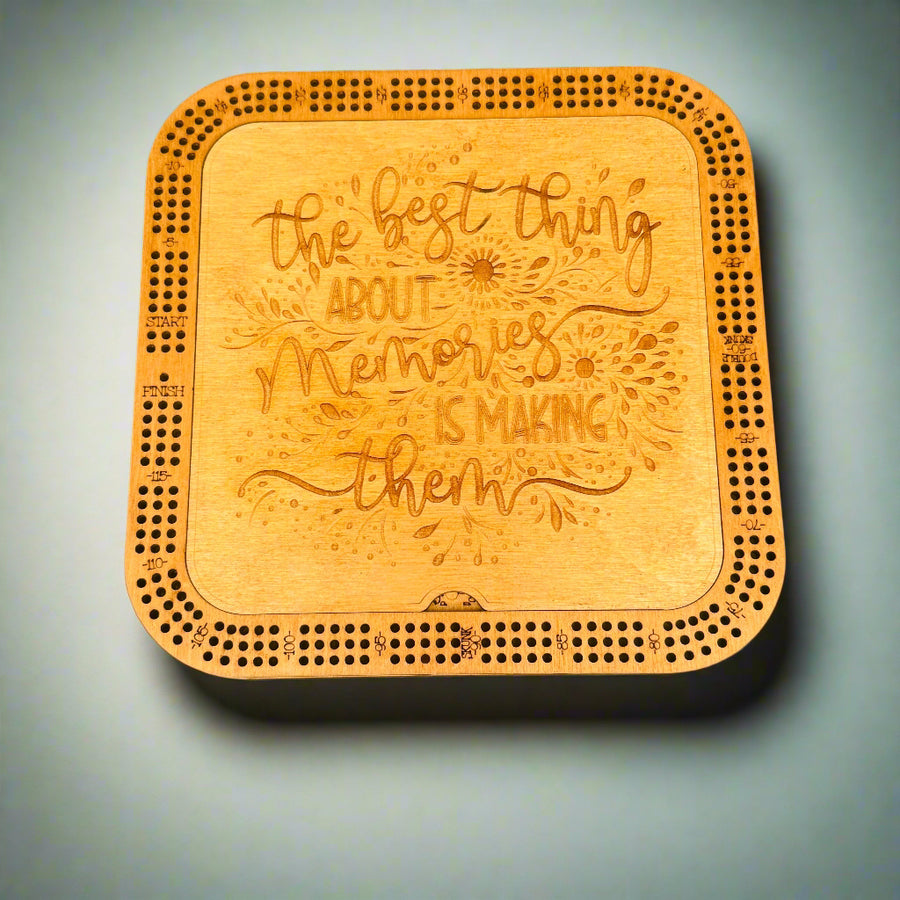 the best thing
ABOUT
Memories
IS MAKING
them
START
FINISH
-5-
-10-
-50-
-55-
-60-
DOUBLE
SKUNK
-65-
-70-
-75-
-80-
-85-
-90-
SKUNK
-95-
-100-
-105-
-110-
-115-